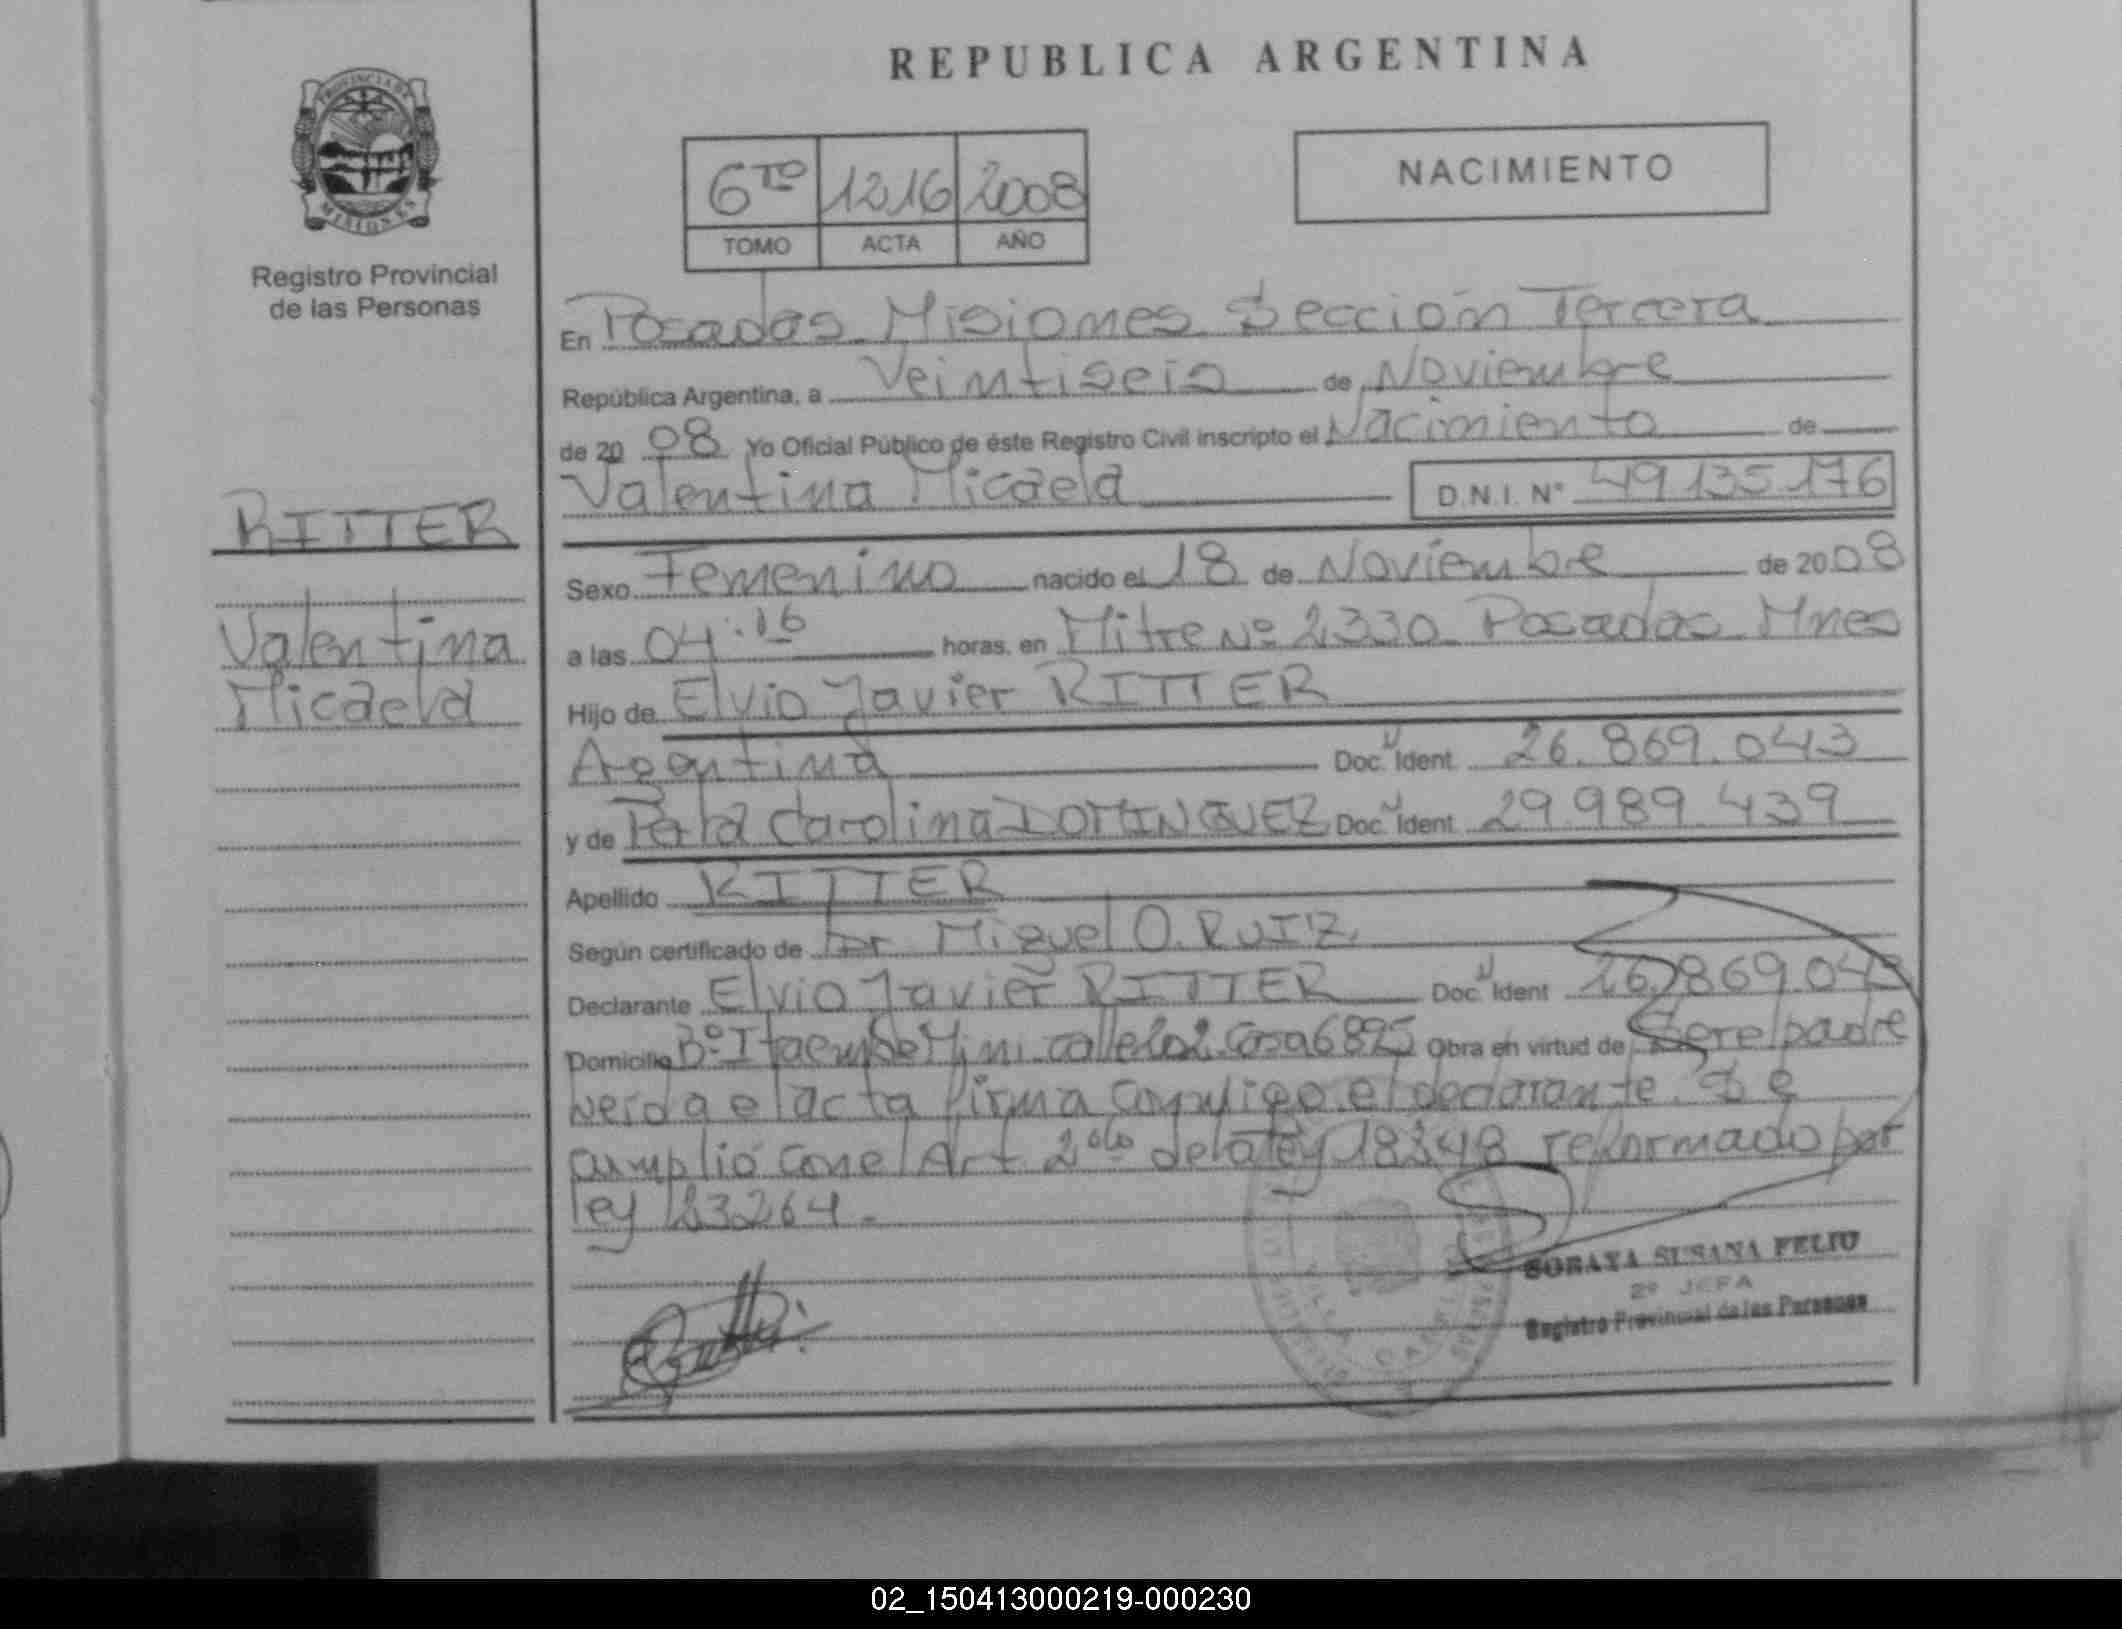 REPUBLICA ARGENTINA
PROVINCIA DE
MISIONES
Registro Provincial
de las Personas
6TO 1216 2008
TOMO ACTA AÑO
NACIMIENTO
En Posadas Misiones Sección Tercera
República Argentina, a Veintiseis de Noviembre
de 2008 Yo Oficial Público de éste Registro Civil inscripto el Nacimiento de
Valentina Micaela D.N.I. Nº 49.135.176
RITTER
Valentina
Micaela
Sexo Femenino nacido el 18 de Noviembre de 2008
a las 04:16 horas, en Mitre Nº 2330 Posadas Mnes
Hijo de Elvio Javier RITTER
Agentina Doc. Ident. 26.869.043
y de Perla Carolina DOMINGUEZ Doc. Ident. 29.989.439
Apellido RITTER
Según certificado de Dr Miguel O. RUIZ
Declarante Elvio Javier RITTER Doc. Ident 26.869.043
Domicilio Bº Itaembe Mini calle 202 Casa 6895 Obra en virtud de Ser el padre
Leida el acta firma conmigo el declarante. Se
cumplió con el Art 2do de la ley 18248 reformado por
ley 23264.-
SORAYA SUSANA FELIU
2º JEFA
Registro Provincial de las Personas
02_150413000219-000230